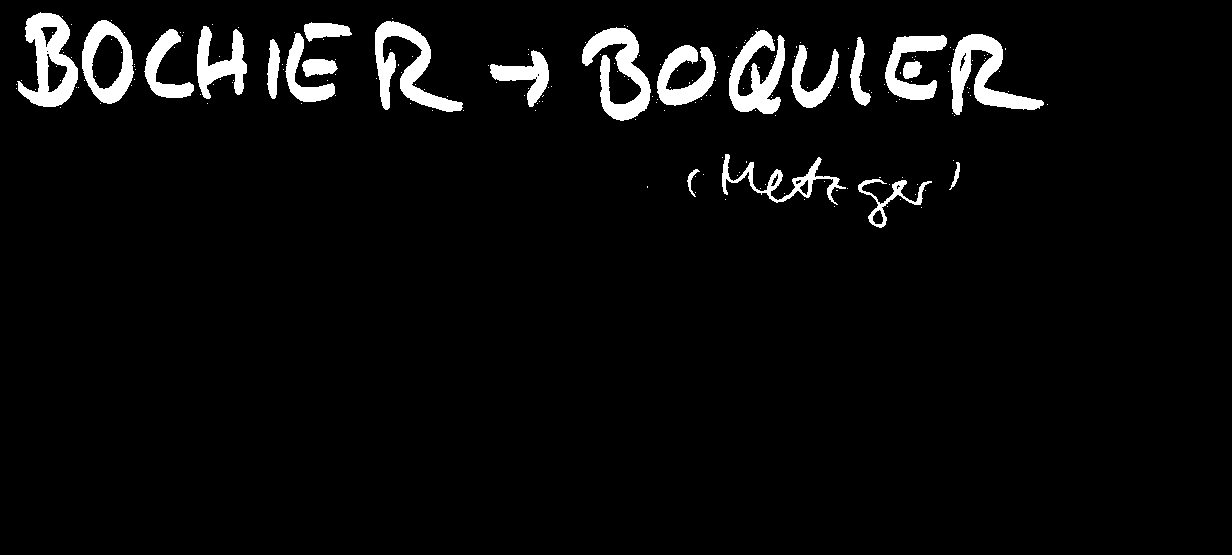 BOCHIER → BOQUIER
(Metzger)